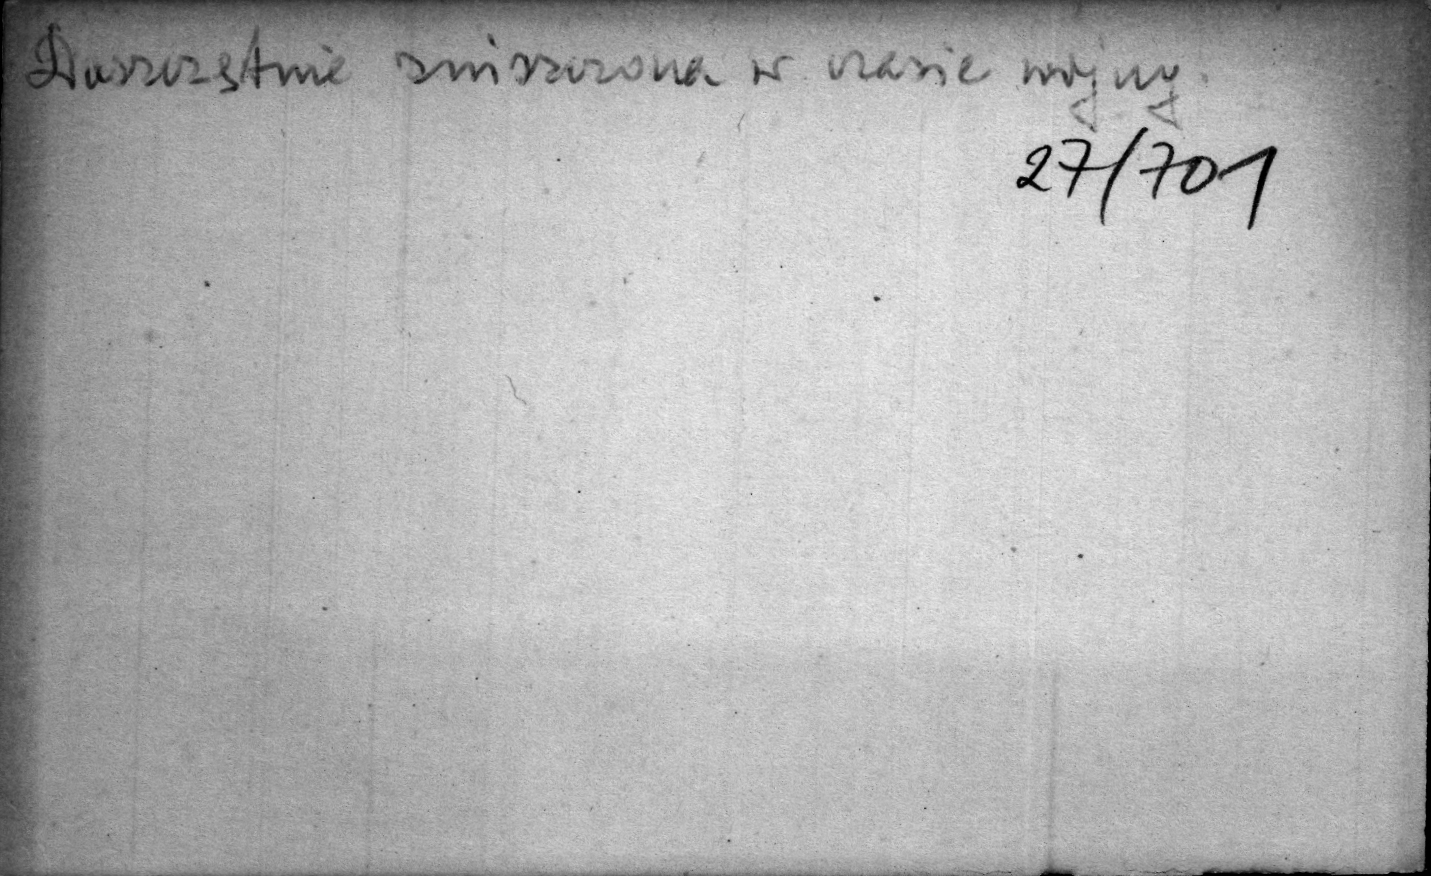 Doszczętnie zniszczona w czasie wojny.
27/701